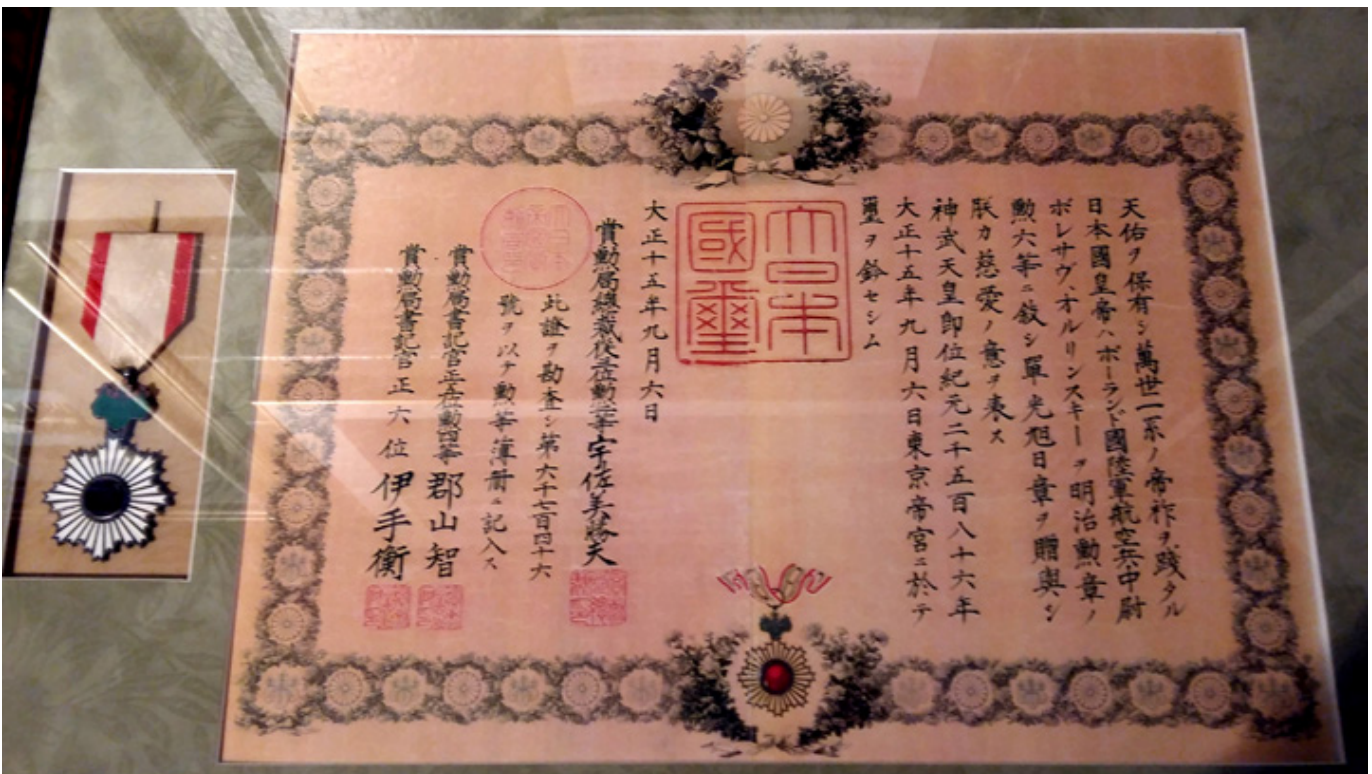 天佑ヲ保有シ萬世一系ノ帝祚ヲ踐タル
日本國皇帝ハポーランド國陸軍航空兵中尉
ボレサヴ、オルリンスキーヲ明治勲章ノ
勲六等ニ敍シ單光旭日章ヲ贈與シ
朕カ慈愛ノ意ヲ表ス
神武天皇即位紀元二千五百八十六年
大正十五年九月六日東京帝宮ニ於テ
璽ヲ鈐セシム
大日本
國璽
大正十五年九月六日
賞勲局總裁 宇佐美勝夫
此證ヲ勘査シ第六千七百四十六
號ヲ以テ勲等簿冊ニ記入ス
賞勲局書記官正五位勲四等 郡山智
賞勲局書記官正六位 伊手衡